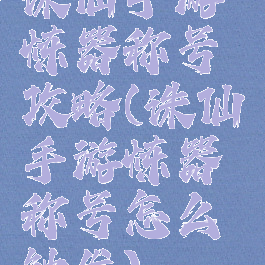 诛仙手游
炼器称号
攻略(诛仙
手游炼器
称号怎么
触发)